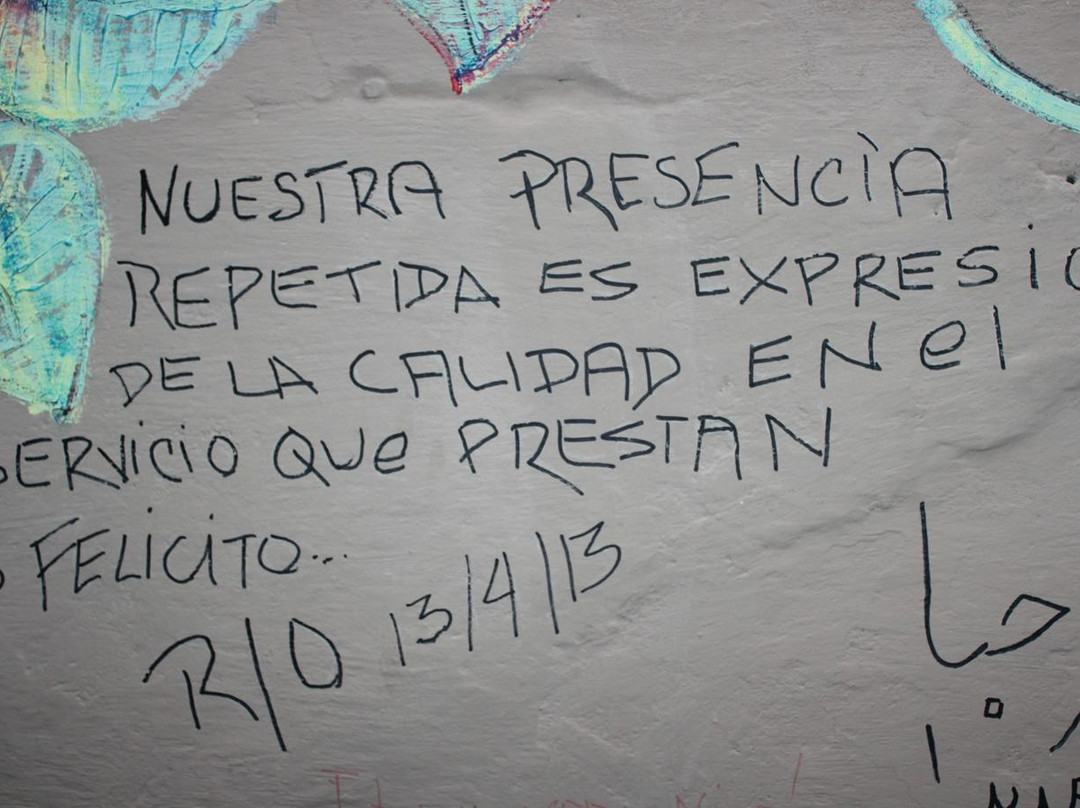 NUESTRA PRESENCIA
REPETIDA ES EXPRESIO
DE LA CALIDAD EN el
SERVICIO QUe PRESTAN
FELICITO...
R/O 13/4/13